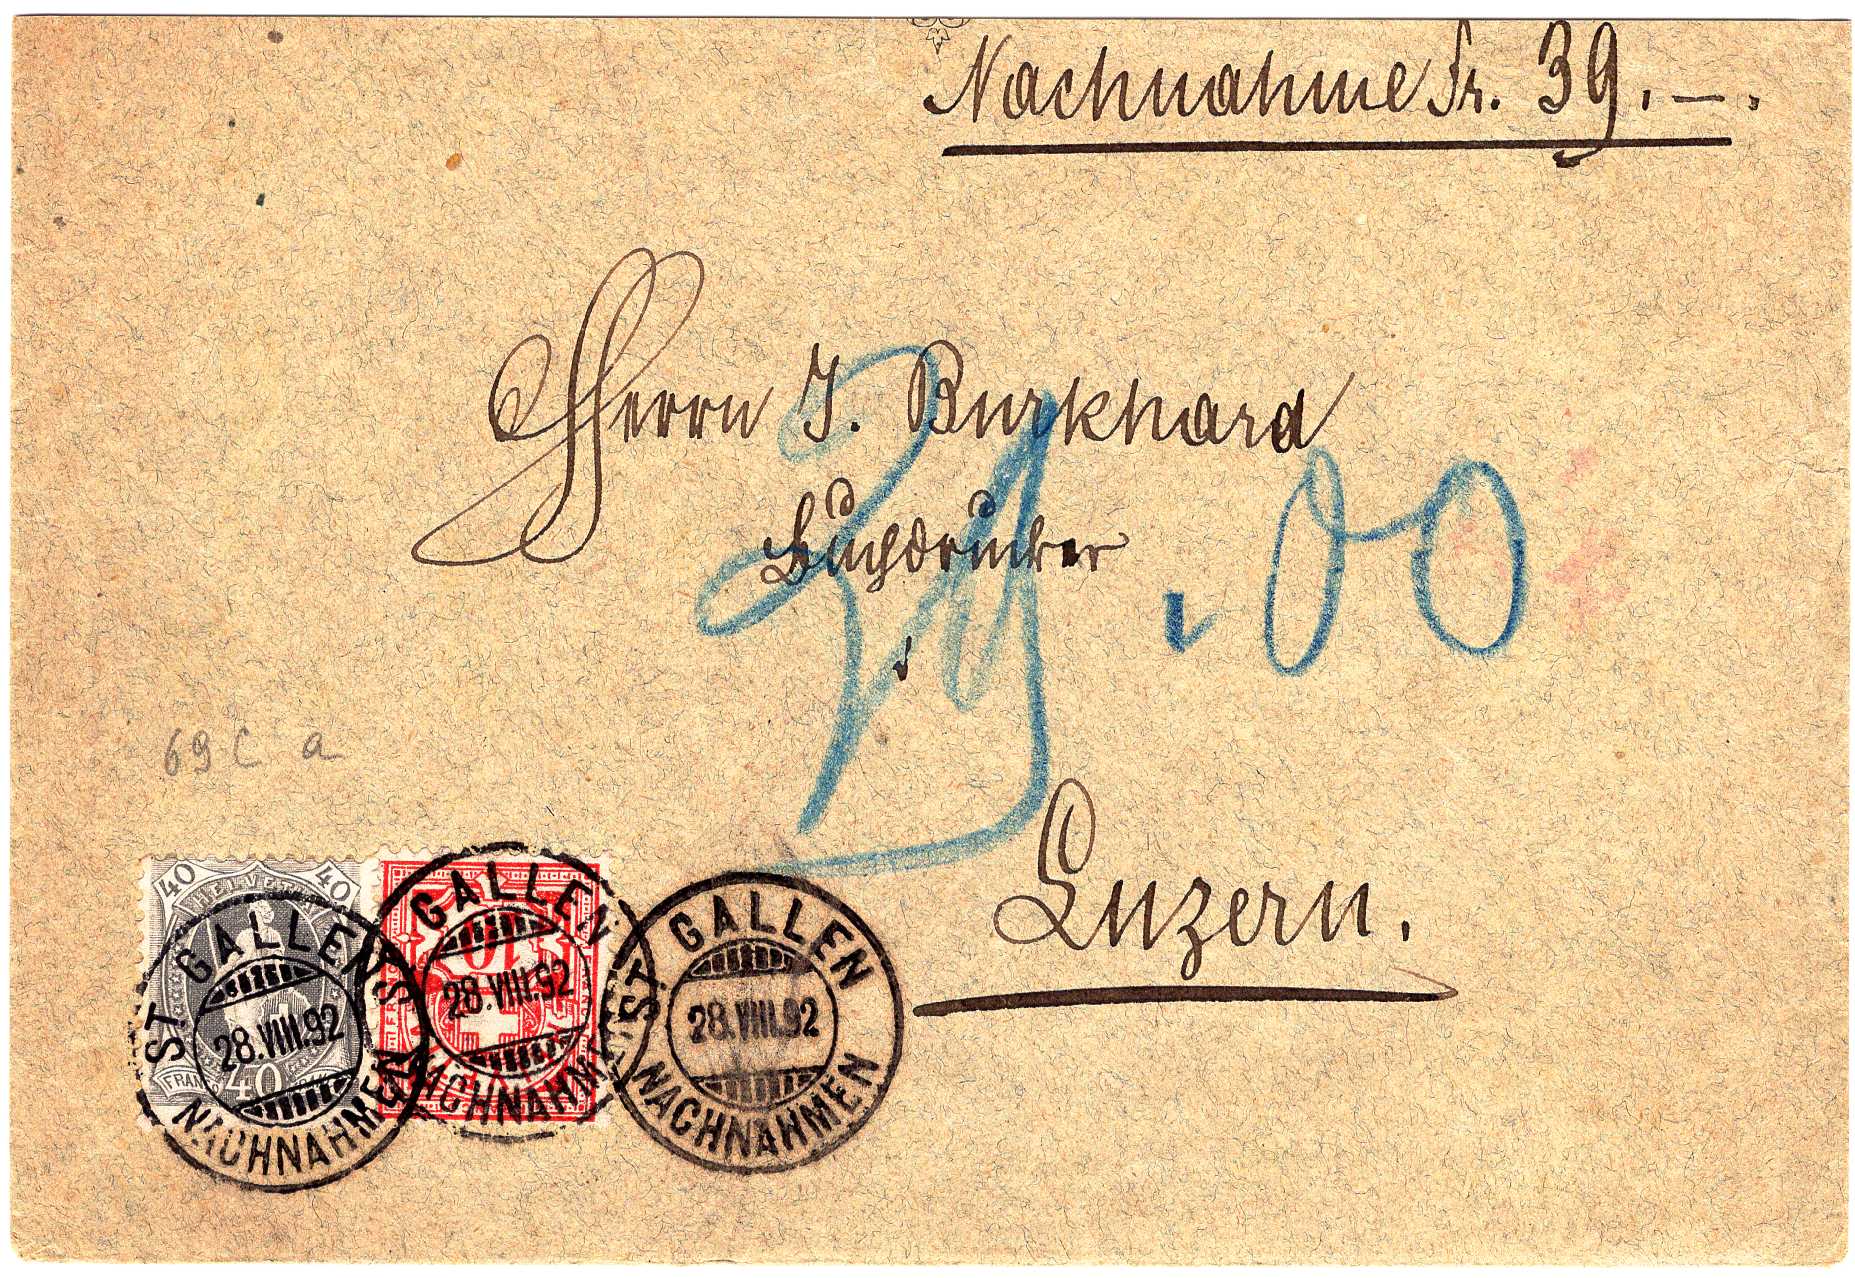 Nachnahme Fr. 39.—.
Herrn J. Burkhard
Buchdrucker
39.00
Luzern.
69 C a
40 40
HELVETIA
FRANCO
40
ST. GALLEN
28.VIII.92
NACHNAHMEN
10
FRANCO
ST. GALLEN
28.VIII.92
NACHNAHMEN
ST. GALLEN
28.VIII.92
NACHNAHMEN